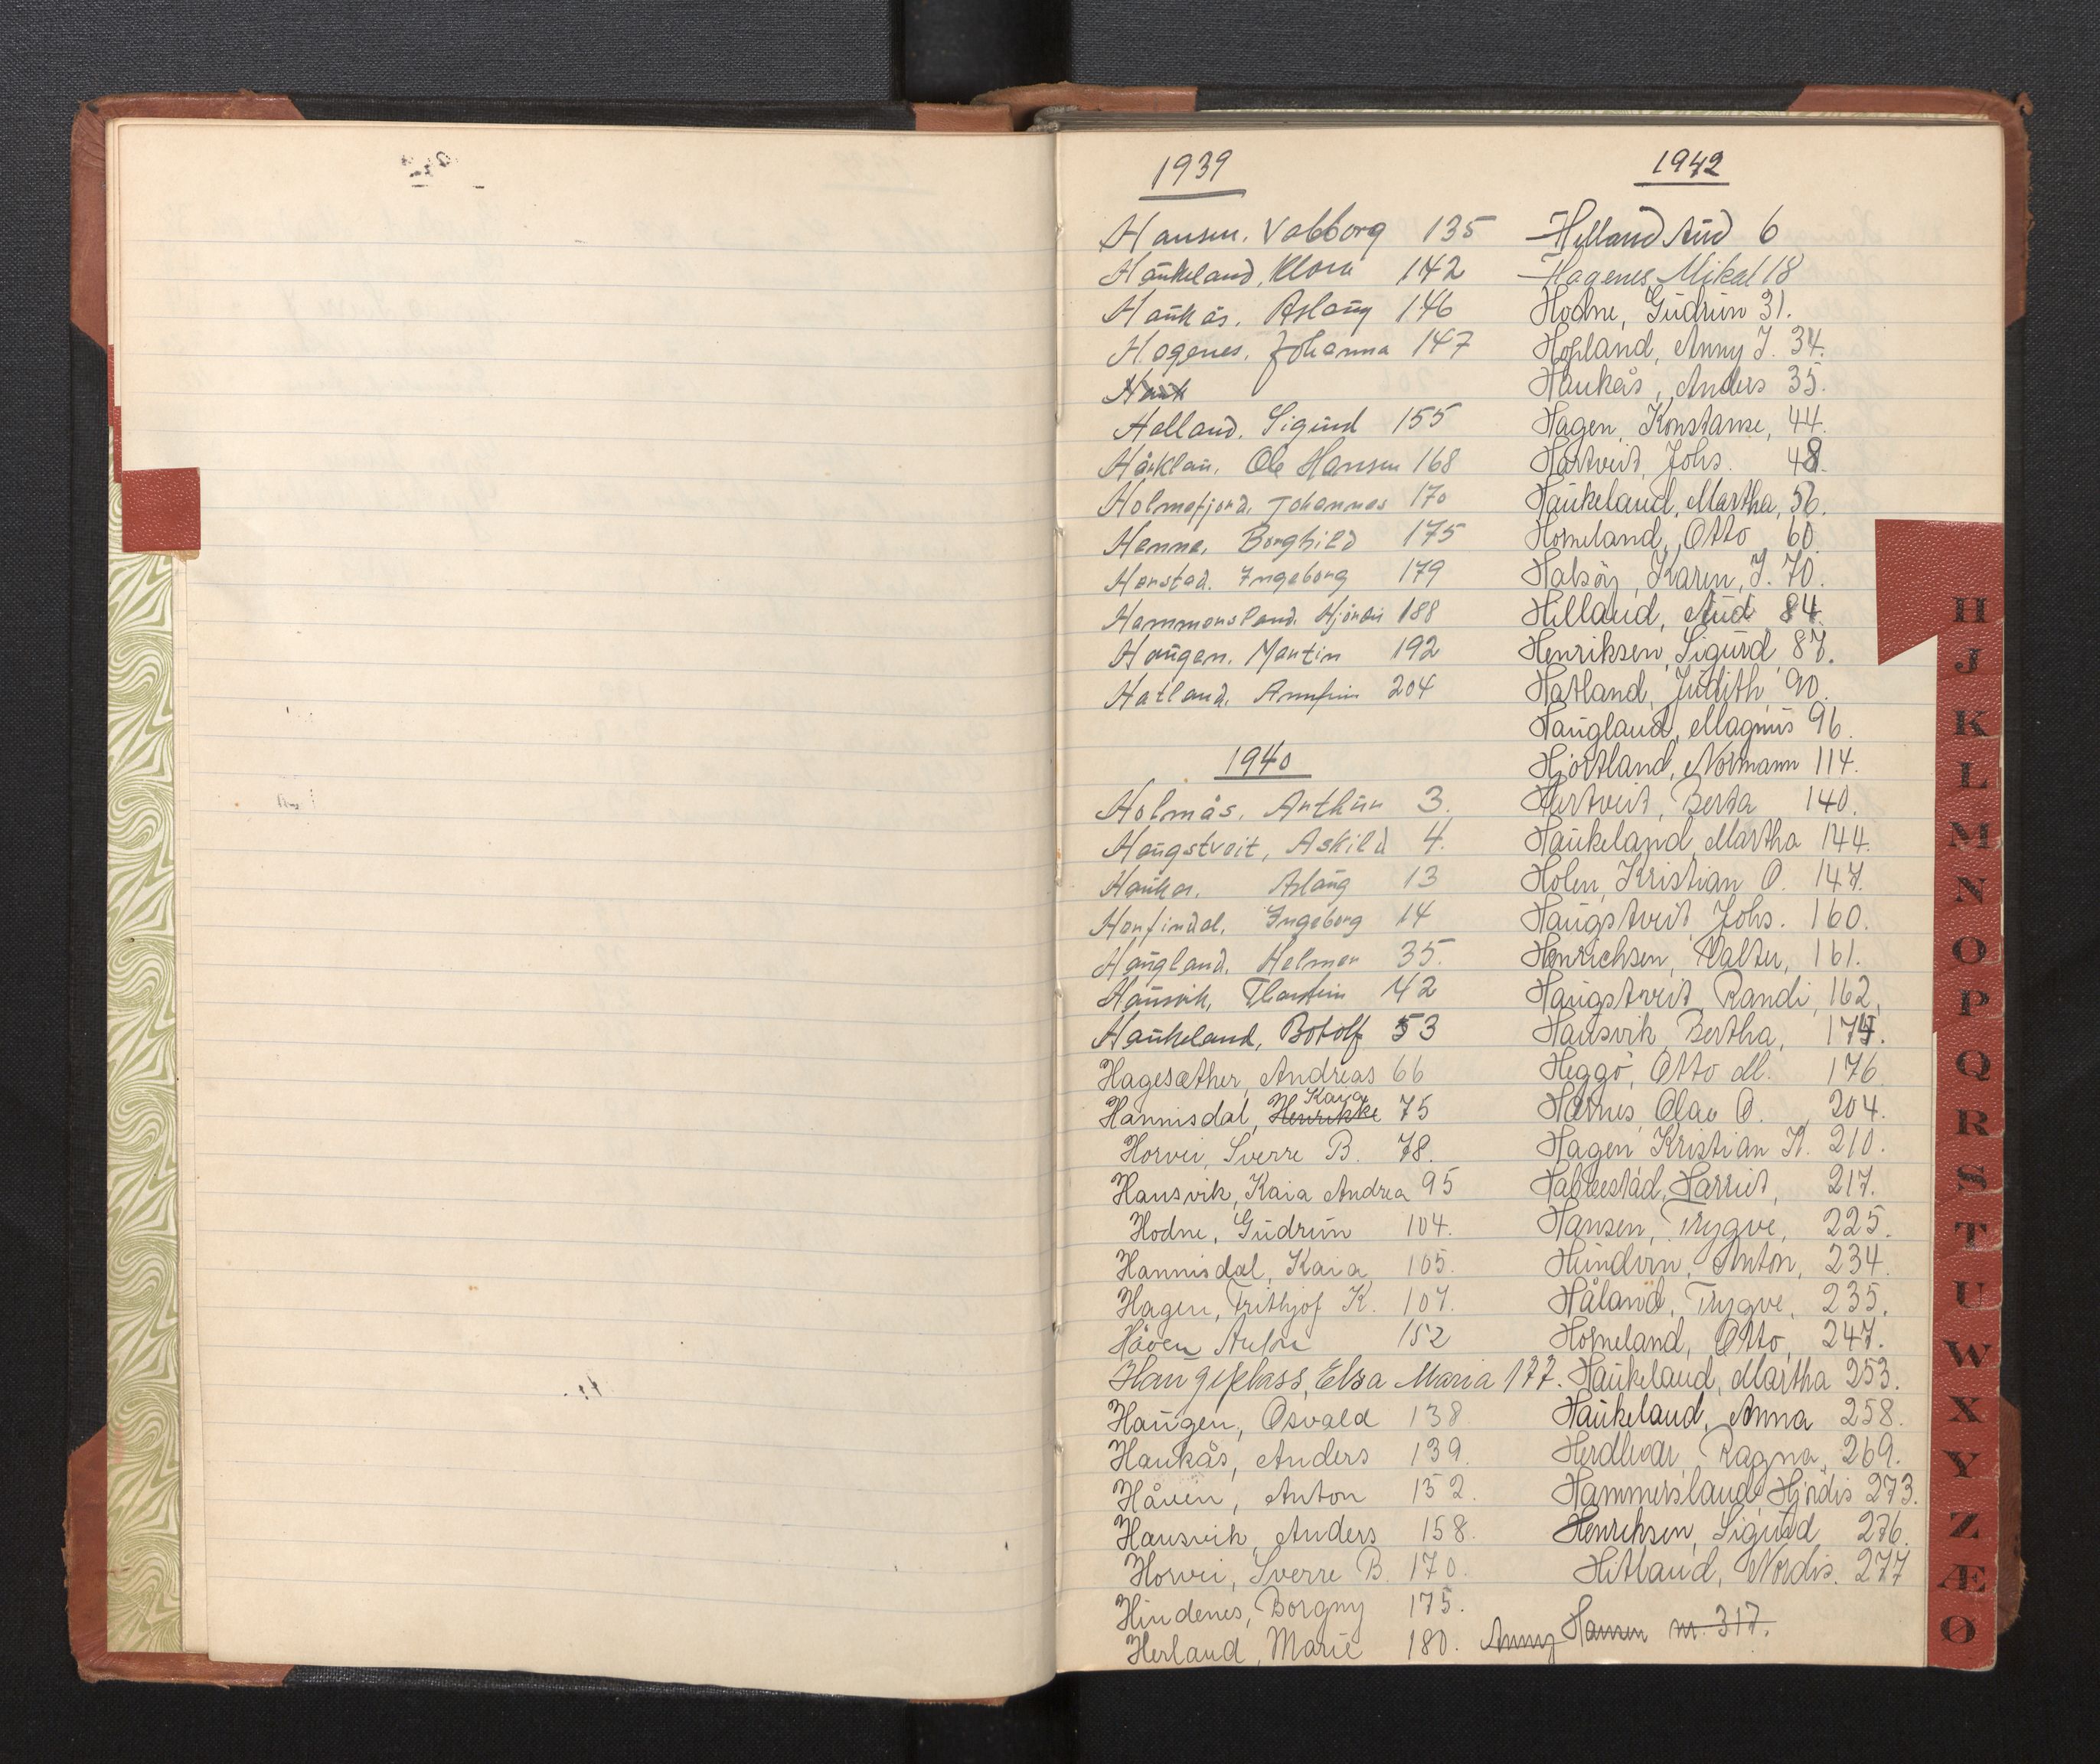 1939
Hansen. Valborg 135
Haukeland, Klara 142
Haukås. Aslaug 146
Hagenes. Johanna 147
Hauk
Helland. Sigurd 155
Ole Hansen 168
Holmefjord. Johannes 170
Henne. Borghild 175
Ingeborg 179
Hammersland. Hjördis 188
Haugen. Martin 192
Hatland. Arnfinn 204
1940
Holmås. Arthur 3.
Haugstveit, Askild 4.
Haukås. Aslaug 13
Honfindal. Ingeborg 14
Haugland. Helmer 35.
Hausvik, Thorstein 42
Haukeland, Botolf 53
Hagesæther, Andreas 66
Hannisdal, Henrikke Kaia 75
Horvei, Sverre B. 78.
Hausvik, Kaia Andrea 95
Hodne, Gudrun 104.
Hannisdal, Kaia 105.
Hagen, Frithjof K. 107.
Håven 152
Elsa Maria 177.
Haugen, Osvald 138
Haukås, Anders 139.
Håven, Anton 152.
Hausvik, Anders 158.
Horvei, Sverre B. 170.
Hindenes, Borgny 175.
Herland, Marie 180.
1942
Helland Aud 6
Hagenes Mikal 18
Hodne, Gudrun 31.
Hopland, Anny J. 34.
Haukås, Anders 35.
Hagen, Konstanse, 44.
Hartveit, Johs. 48.
Haukeland, Martha, 56.
Homeland, Otto 60.
Halsöy, Karen, J. 70.
Hilland, Aud 84.
Henriksen, Sigurd 87.
Hatland, Judith, 90.
Haugland, Magnus 96.
Hjortland, Normann 114.
Hartveit, Berta 140.
Haukeland, Martha 144.
Holen, Kristian O. 147.
Haugstveit, Johs. 160.
Henrichsen, Valter, 161.
Haugstveit, Randi, 162,
Hausvik, Bertha, 174.
Heggö, Otto M. 176
Olav O. 204.
Hagen, Kristian K. 210.
Harriet, 217.
Hansen, Trygve, 225.
Hundven, Anton, 234.
Håland, Trygve, 235.
Homeland, Otto, 247.
Haukeland, Martha 253.
Haukeland, Anna 258.
Herdlevær, Ragna, 269.
Hammersland, Hjördis 273.
Henriksen, Sigurd 276.
Hitland, Nordis. 277
Anny Hansen nr. 317.
H
J
K
L
M
N
O
P
Q
R
S
T
U
W
X
Y
Z
Æ
Ø